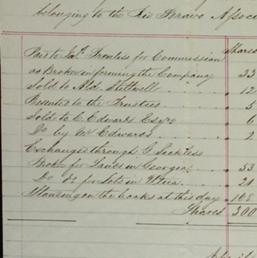 belonging to the Rio Bravo Assoc
Shares
Paid to Jas. Prentiss for Commission
as Broker in forming the Company 33
Sold to Ald. Stilwell 12
Presented to the Trustees 5
Sold to C. Edwards Esqr 6
Do by W Edwards 2
Exchanged through G
Books for Lands in Georgia 33
Do do for Lots in Utica 2
Standing on the books at this day 168
Shares 300